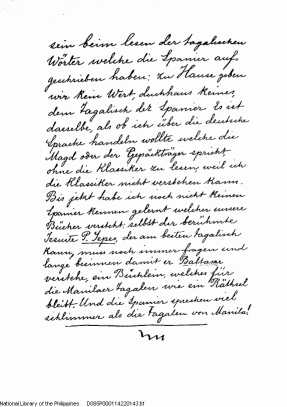 sein beim lesen der tagalischen
Wörter welche die Spanier auf-
geschrieben haben; zu Hause geben
wir kein Wert, durchaus keines,
dem Tagalisch der Spanier. Es ist
dasselbe, als ob ich über die deutsche
Sprache handeln wollte welche die
Magd oder der Gepäckträger spricht
ohne die Klassiker zu lesen, weil ich
die Klassiker nicht verstehen kann.
Bis jetzt habe ich noch nicht keinen
Spanier kennen gelernt welcher unsere
Bücher versteht; selbst der berühmte
Jesuite P. , der am besten Tagalisch
kann, muss noch immer fragen und
lange besinnen damit er Baltazar
verstehe, ein Büchlein, welches für
die Manilaer Tagalen wie ein Räthsel
bleibt. Und die Spanier sprechen viel
schlimmer als die Tagalen von Manila!
National Library of the Philippines